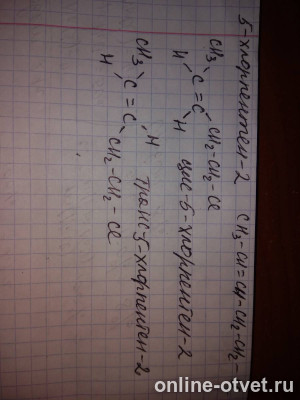 5-хлорпентен-2   CH3-CH=CH-CH2-CH2-
CH3   CH2-CH2-Cl
C=C   цис-5-хлорпентен-2
H   H
CH3   H
C=C   транс-5-хлорпентен-2
H   CH2-CH2-Cl
online-otvet.ru